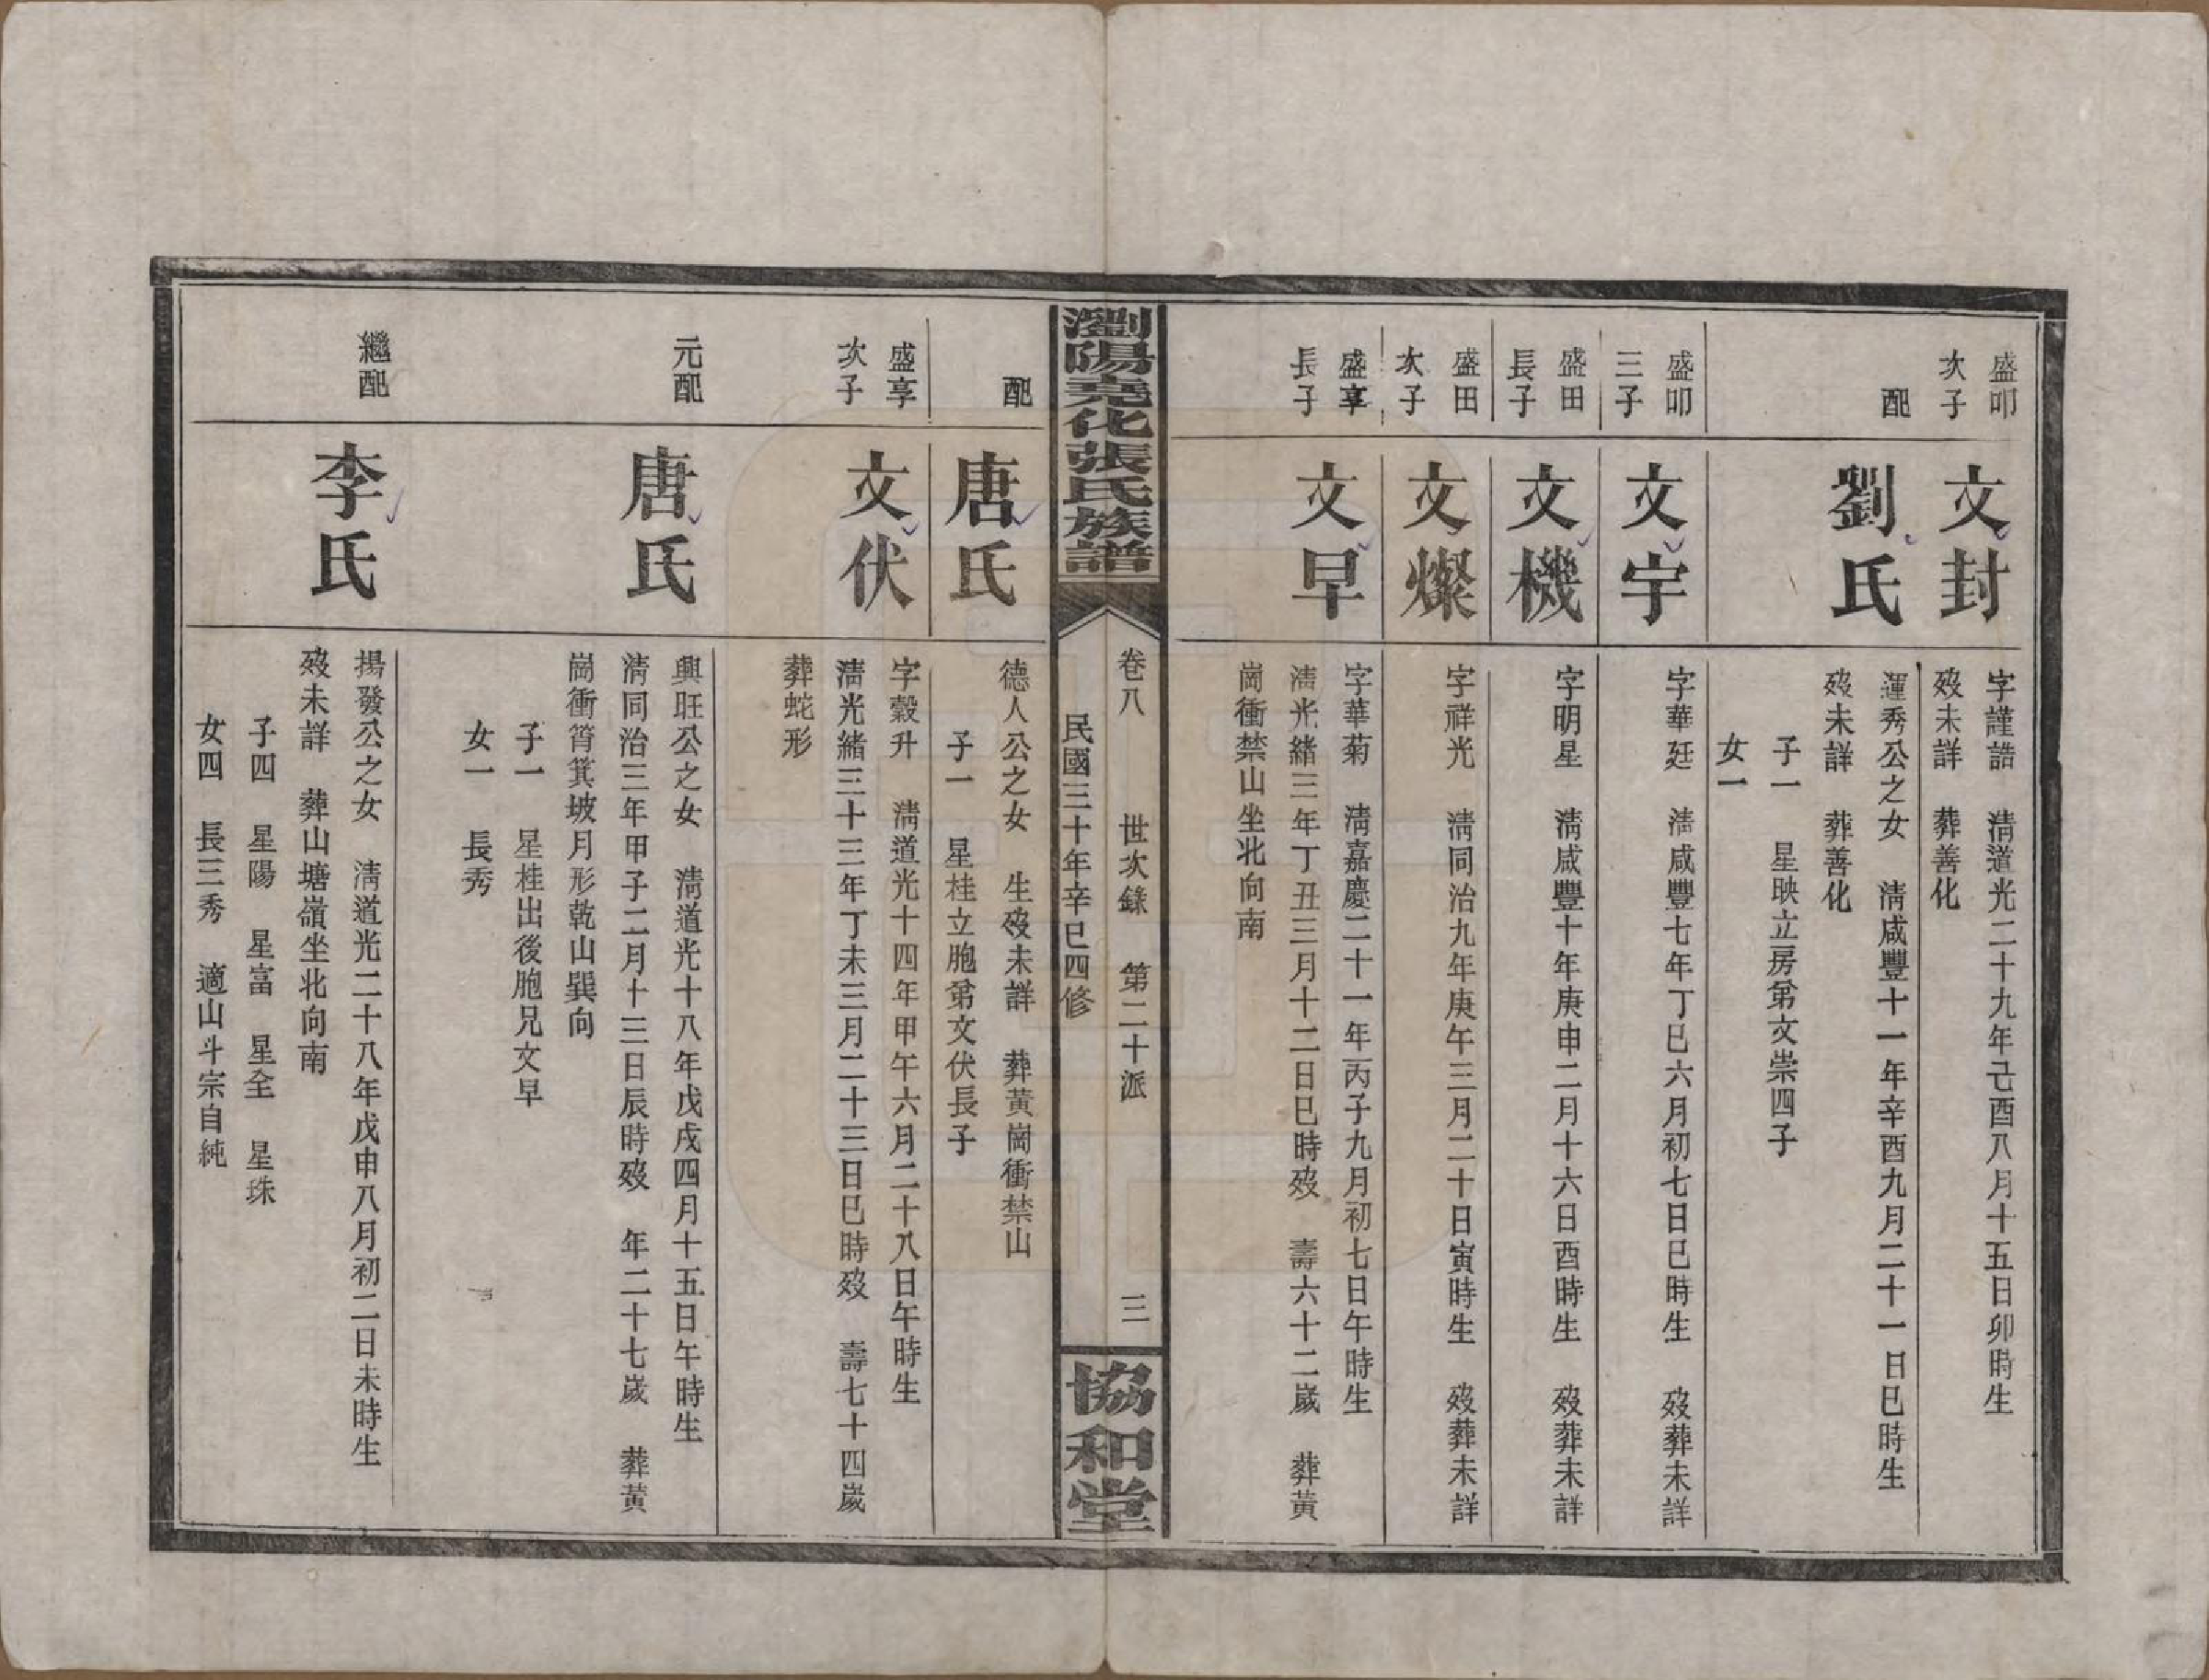 盛叩
次子
文封
字謹誥　清道光二十九年己酉八月十五日卯時生
歿未詳　葬善化
配
劉氏
運秀公之女　清咸豐十一年辛酉九月二十一日巳時生
歿未詳　葬善化
子一　星映立房弟文崇四子
女一
盛叩
三子
文宇
字華廷　清咸豐七年丁巳六月初七日巳時生　歿葬未詳
盛田
長子
文機
字明星　清咸豐十年庚申二月十六日酉時生　歿葬未詳
盛田
次子
文燦
字祥光　清同治九年庚午三月二十日寅時生　歿葬未詳
盛享
長子
文早
字華菊　清嘉慶二十一年丙子九月初七日午時生
清光緒三年丁丑三月十二日巳時歿　壽六十二歲　葬黃
崗衝禁山坐北向南
瀏陽堯化張氏族譜
卷八　世次錄　第二十派　三
民國三十年辛巳四修
協和堂
配
唐氏
德人公之女　生歿未詳　葬黃崗衝禁山
子一　星桂立胞弟文伏長子
盛享
次子
文伏
字穀升　清道光十四年甲午六月二十八日午時生
清光緒三十三年丁未三月二十三日巳時歿　壽七十四歲
葬蛇形
元配
唐氏
興旺公之女　清道光十八年戊戌四月十五日午時生
清同治三年甲子二月十三日辰時歿　年二十七歲　葬黃
崗衝筲箕坡月形乾山巽向
子一　星桂出後胞兄文早
女一　長秀
繼配
李氏
揚發公之女　清道光二十八年戊申八月初二日未時生
歿未詳　葬山塘嶺坐北向南
子四　星陽　星富　星全　星珠
女四　長三秀　適山斗宗自純